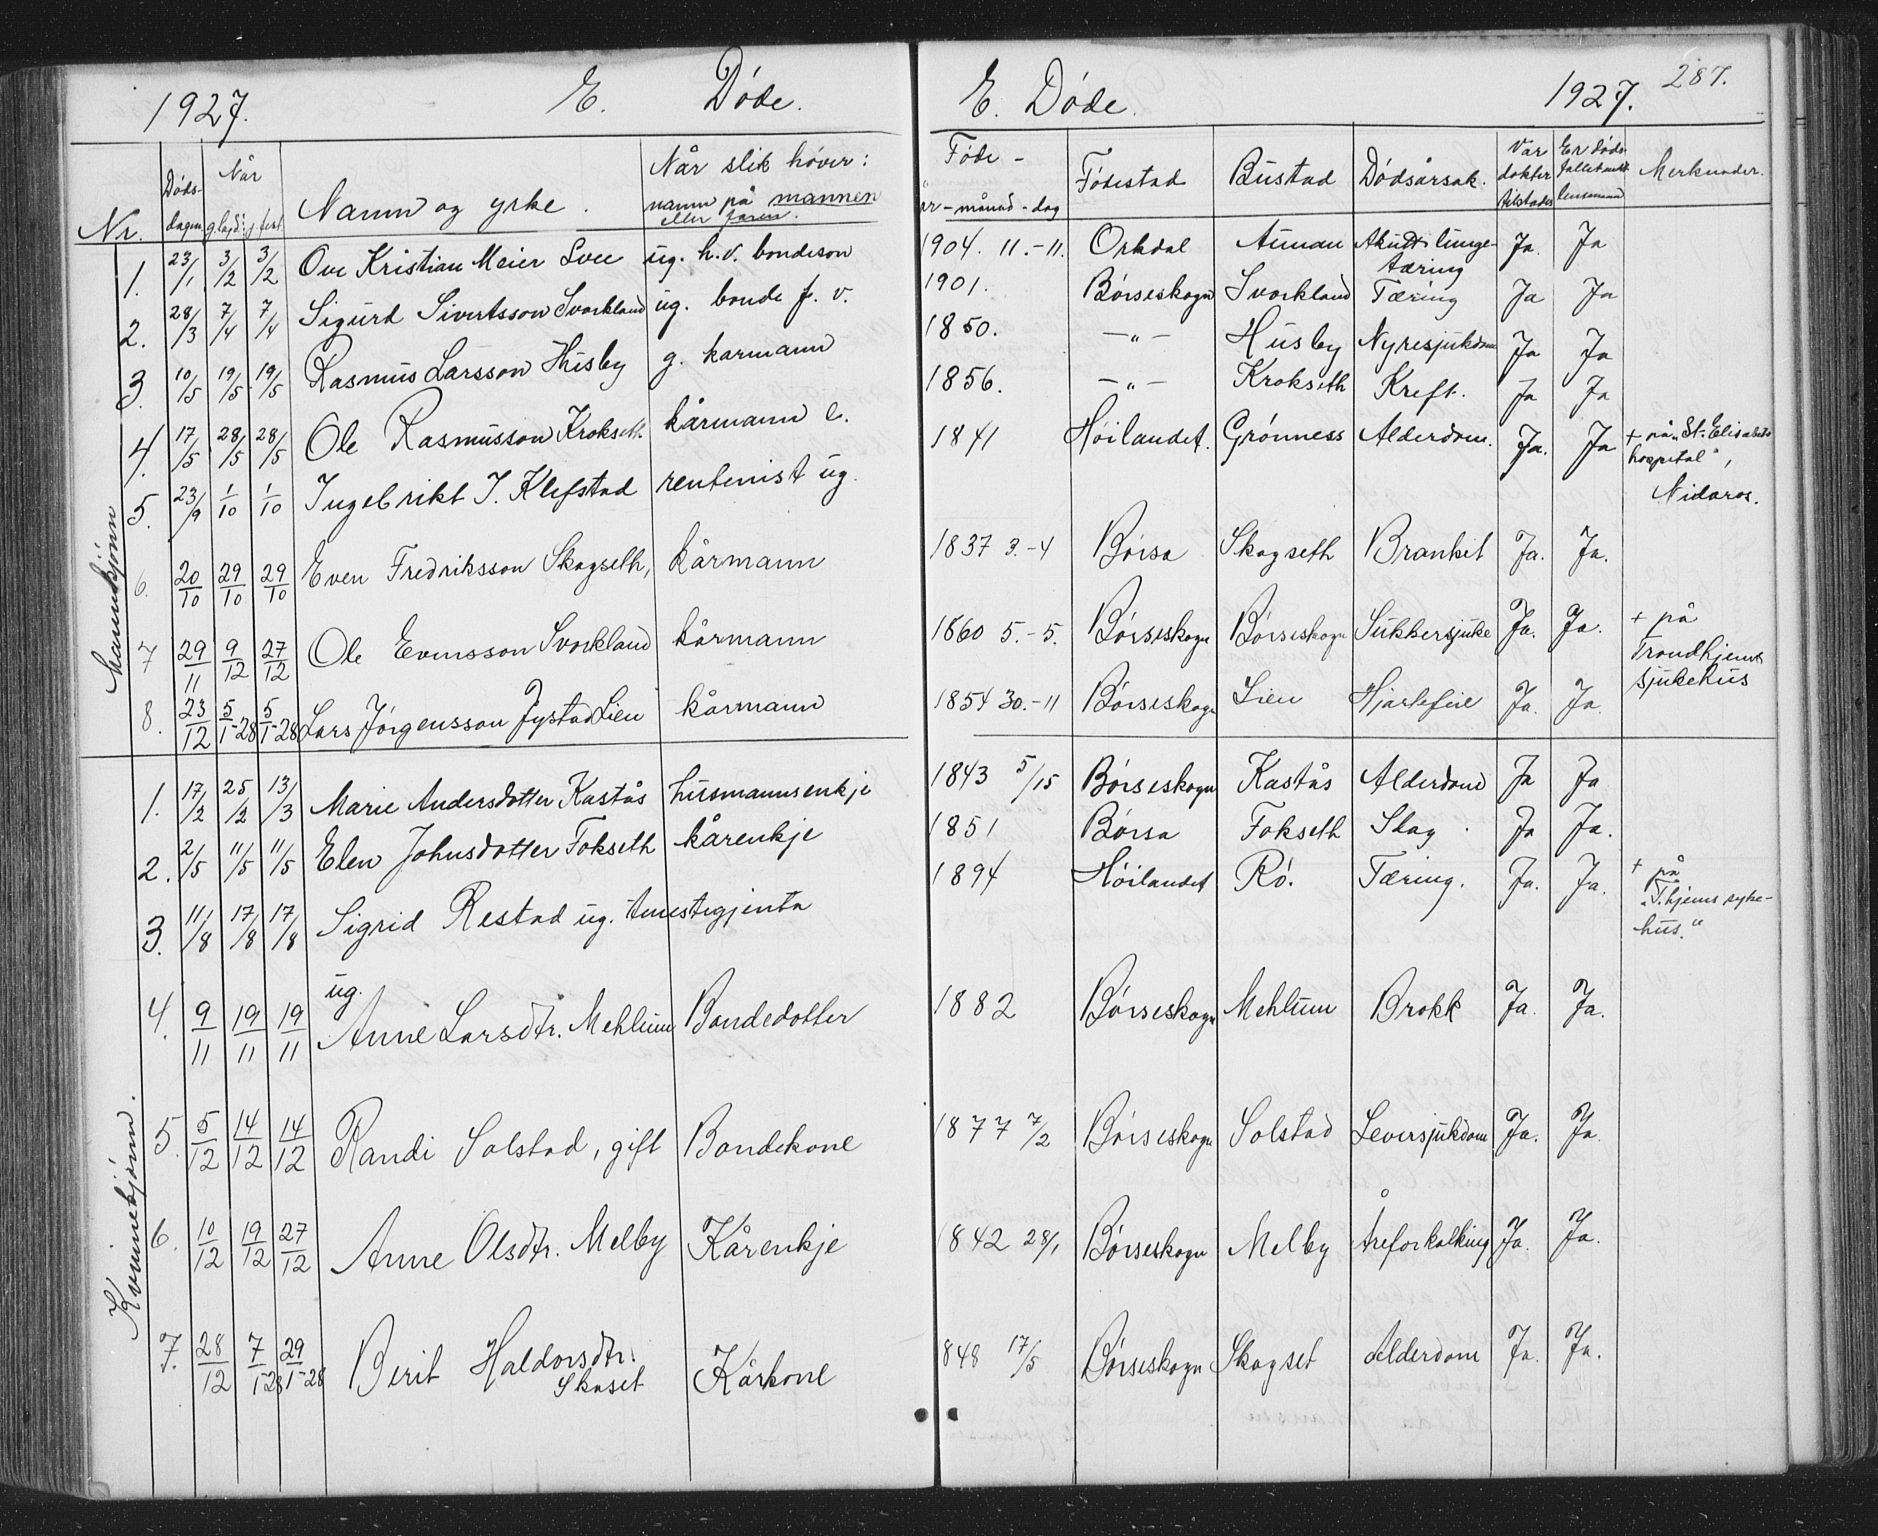 1927. E. Døde.
Nr. Døds-dagen Når g.lagd: j.fest Namn og yrke. Når slik høver: namn på mannen eller faren.
Mannkjønn
1. 23/1 3/2 3/2 Ove Kristian Meier Svee ug. h.v. bondeson
2. 28/3 7/4 7/4 Sigurd Sivertsson Svorkland ug. bonde f. v.
3. 10/5 19/5 19/5 Rasmus Larsson Husby g. karmann
4. 17/5 28/5 28/5 Ole Rasmusson Krokseth. kårmann e.
5. 23/9 1/10 1/10 Ingebrikt J. Klefstad rentenist ug.
6. 20/10 29/10 29/10 Even Fredriksson Skogseth, kårmann
7 29/11 9/12 27/12 Ole Evensson Svorkland kårmann
8. 23/12 5/1-28 5/1-28 Lars Jørgensson Jystad Lien kårmann
Kvinnekjønn.
1. 17/2 25/2 13/3 Marie Andersdotter Kastås husmannsenkje
2. 2/5 11/5 11/5 Elen Johnsdotter Fokseth kårenkje
3. 11/8 17/8 17/8 Sigrid Restad ug. tenestegjenta
ug.
4. 9/11 19/11 19/11 Anne Larsdtr. Mehlum Bondedotter
5. 5/12 14/12 14/12 Randi Solstad, gift Bondekone
6. 10/12 19/12 27/12 Anne Olsdtr. Melby Kårenkje
7. 28/12 7/1-28 29/1-28 Berit Haldorsdtr. Skaset Kårkone
E. Døde. 1927. 287.
Føde - år - månad - dag Fødestad Bustad Dødsårsak. Var dokter tilstades Er døds- lensmann Merknader.
1904. 11.-11. Orkdal Auman Akutt lunge-tæring Ja. Ja
1901. Børseskogn Svorkland Tæring Ja Ja
1850. -"- Husby Nyresjukdom Ja Ja
1856. -"- Krokseth Kreft. Ja Ja
1841 Høilandet. Grønness Alderdom. Ja. Ja + på "St. Elisabeths hospital", Nidaros.
1837 3.-4 Børsa Skogseth Brankit Ja. Ja.
1860 5.-5. Børseskogn Børseskogn Sukkersjuke Ja. Ja. + på Trondhjems sjukehus
1854 30.-11 Børseskogn Lien Hjartefeil Ja. Ja.
1843 5/15 Børseskogn Kastås Alderdom Ja Ja
1851 Børsa Fokseth Slag. Ja Ja.
1894 Høilandet Rø. Tæring. Ja. Ja. + på "T.hjems syke-hus."
1882 Børseskogn Mehlum Brokk Ja. Ja.
1877 7/2 Børseskogn Solstad Leversjukdom Ja. Ja.
1842 28/1 Børseskogn Melby Åreforkalking Ja. Ja.
848 17/5 Børseskogn Skogset Alderdom Ja. Ja.